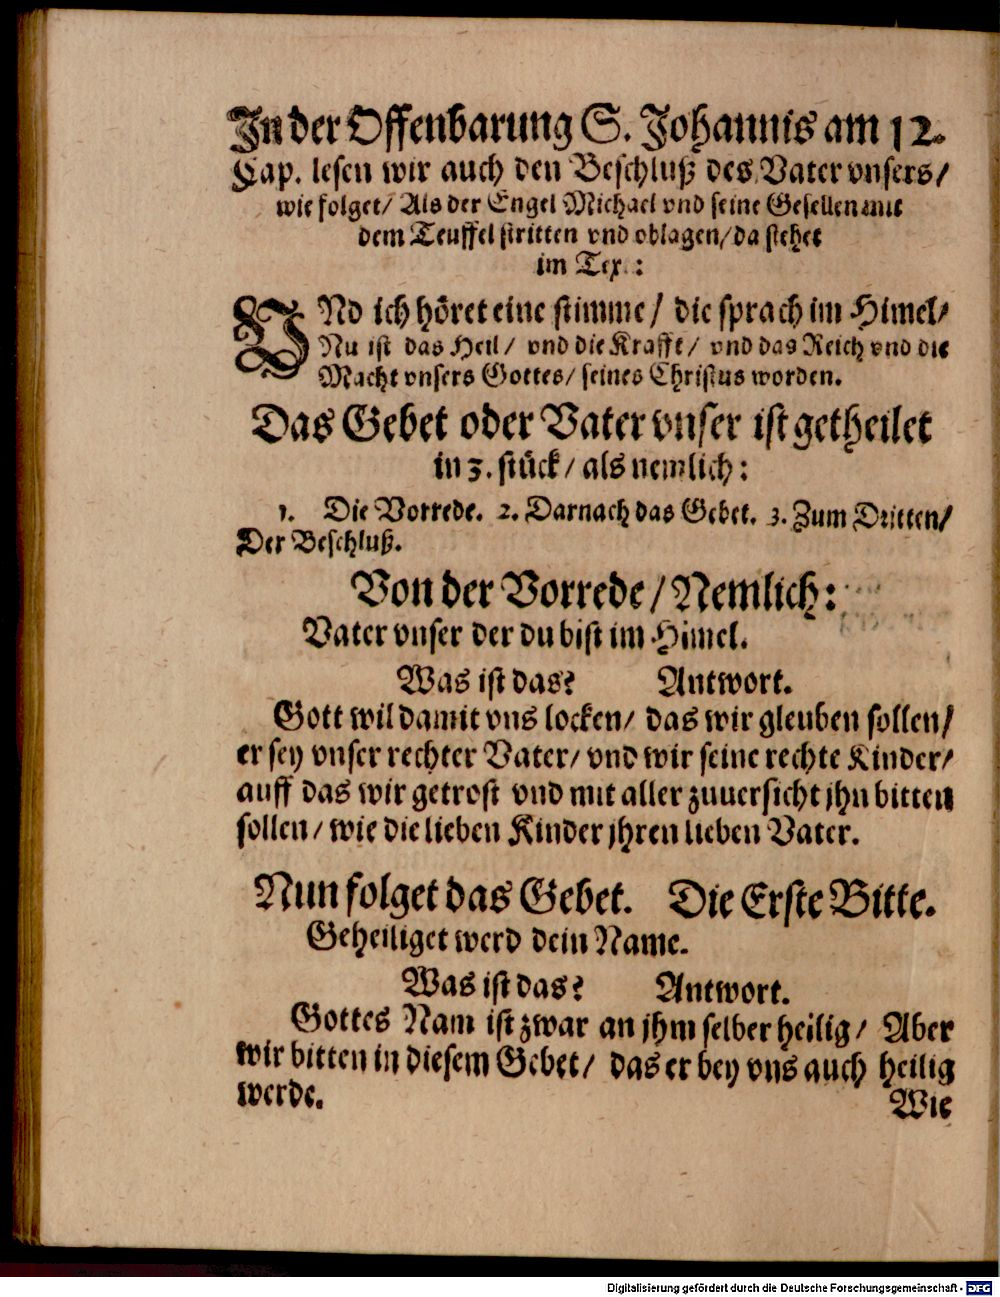 In der Offenbarung S. Johannis am 12.
Cap. lesen wir auch den Beschluß des Vater vnsers/
wie folget/ Als der Engel Michael vnd seine Gesellen mit
dem Teuffel stritten vnd oblagen/ da stehet
im Tex.:
VNd ich höret eine stimme/ die sprach im Himel/
Nu ist das Heil/ vnd die Krafft/ vnd das Reich vnd die
Macht vnsers Gottes/ seines Christus worden.
Das Gebet oder Vater vnser ist getheilet
in 3. stück/ als nemlich:
1. Die Vorrede. 2. Darnach das Gebet. 3. Zum Dritten/
Der Beschluß.
Von der Vorrede/ Nemlich:
Vater vnser der du bist im Himel.
Was ist das? Antwort.
Gott wil damit vns locken/ das wir gleuben sollen/
er sey vnser rechter Vater/ vnd wir seine rechte Kinder/
auff das wir getrost vnd mit aller zuuersicht jhn bitten
sollen/ wie die lieben Kinder jhren lieben Vater.
Nun folget das Gebet. Die Erste Bitte.
Geheiliget werd dein Name.
Was ist das? Antwort.
Gottes Nam ist zwar an jhm selber heilig/ Aber
wir bitten in diesem Gebet/ das er bey vns auch heilig
werde.
Wie
Digitalisierung gefördert durch die Deutsche Forschungsgemeinschaft - DFG